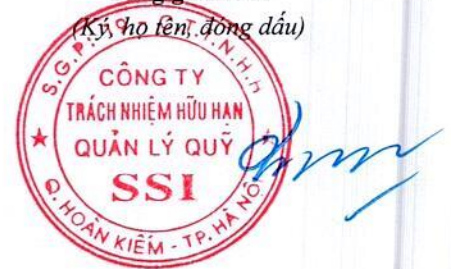 (Ký, họ tên, đóng dấu)
CÔNG TY
TRÁCH NHIỆM HỮU HẠN
QUẢN LÝ QUỸ
SSI
Q. HOÀN KIẾM - TP. HÀ NỘI